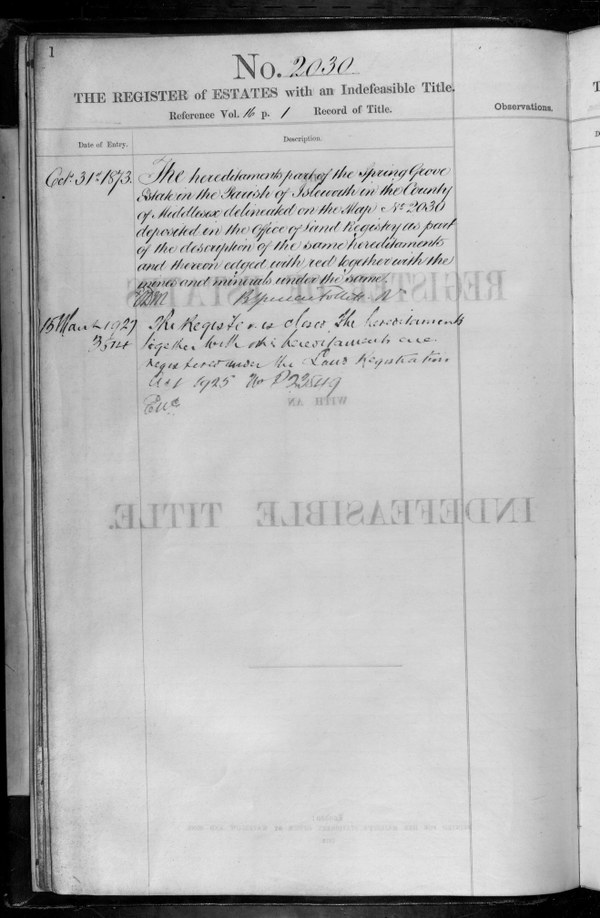 1
No. 2030
THE REGISTER of ESTATES with an Indefeasible Title.
Reference Vol. 16 p. 1 Record of Title.
Observations.
Date of Entry.
Description.
Oct. 31st 1873.
The hereditaments part of the Spring Grove
Estate in the Parish of Isleworth in the County
of Middlesex delineated on the Map No. 2030
deposited in the Office of Land Registry as part
of the description of the same hereditaments
and thereon edged with red together with the
mines and minerals under the same.
15 March 1927
The Register is closed. The hereditaments
together with other hereditaments are
registered under the Land Registration
Act 1925 No P
REGISTER OF ESTATES
WITH AN
INDEFEASIBLE TITLE.
London:
PRINTED FOR HER MAJESTY'S STATIONERY OFFICE BY